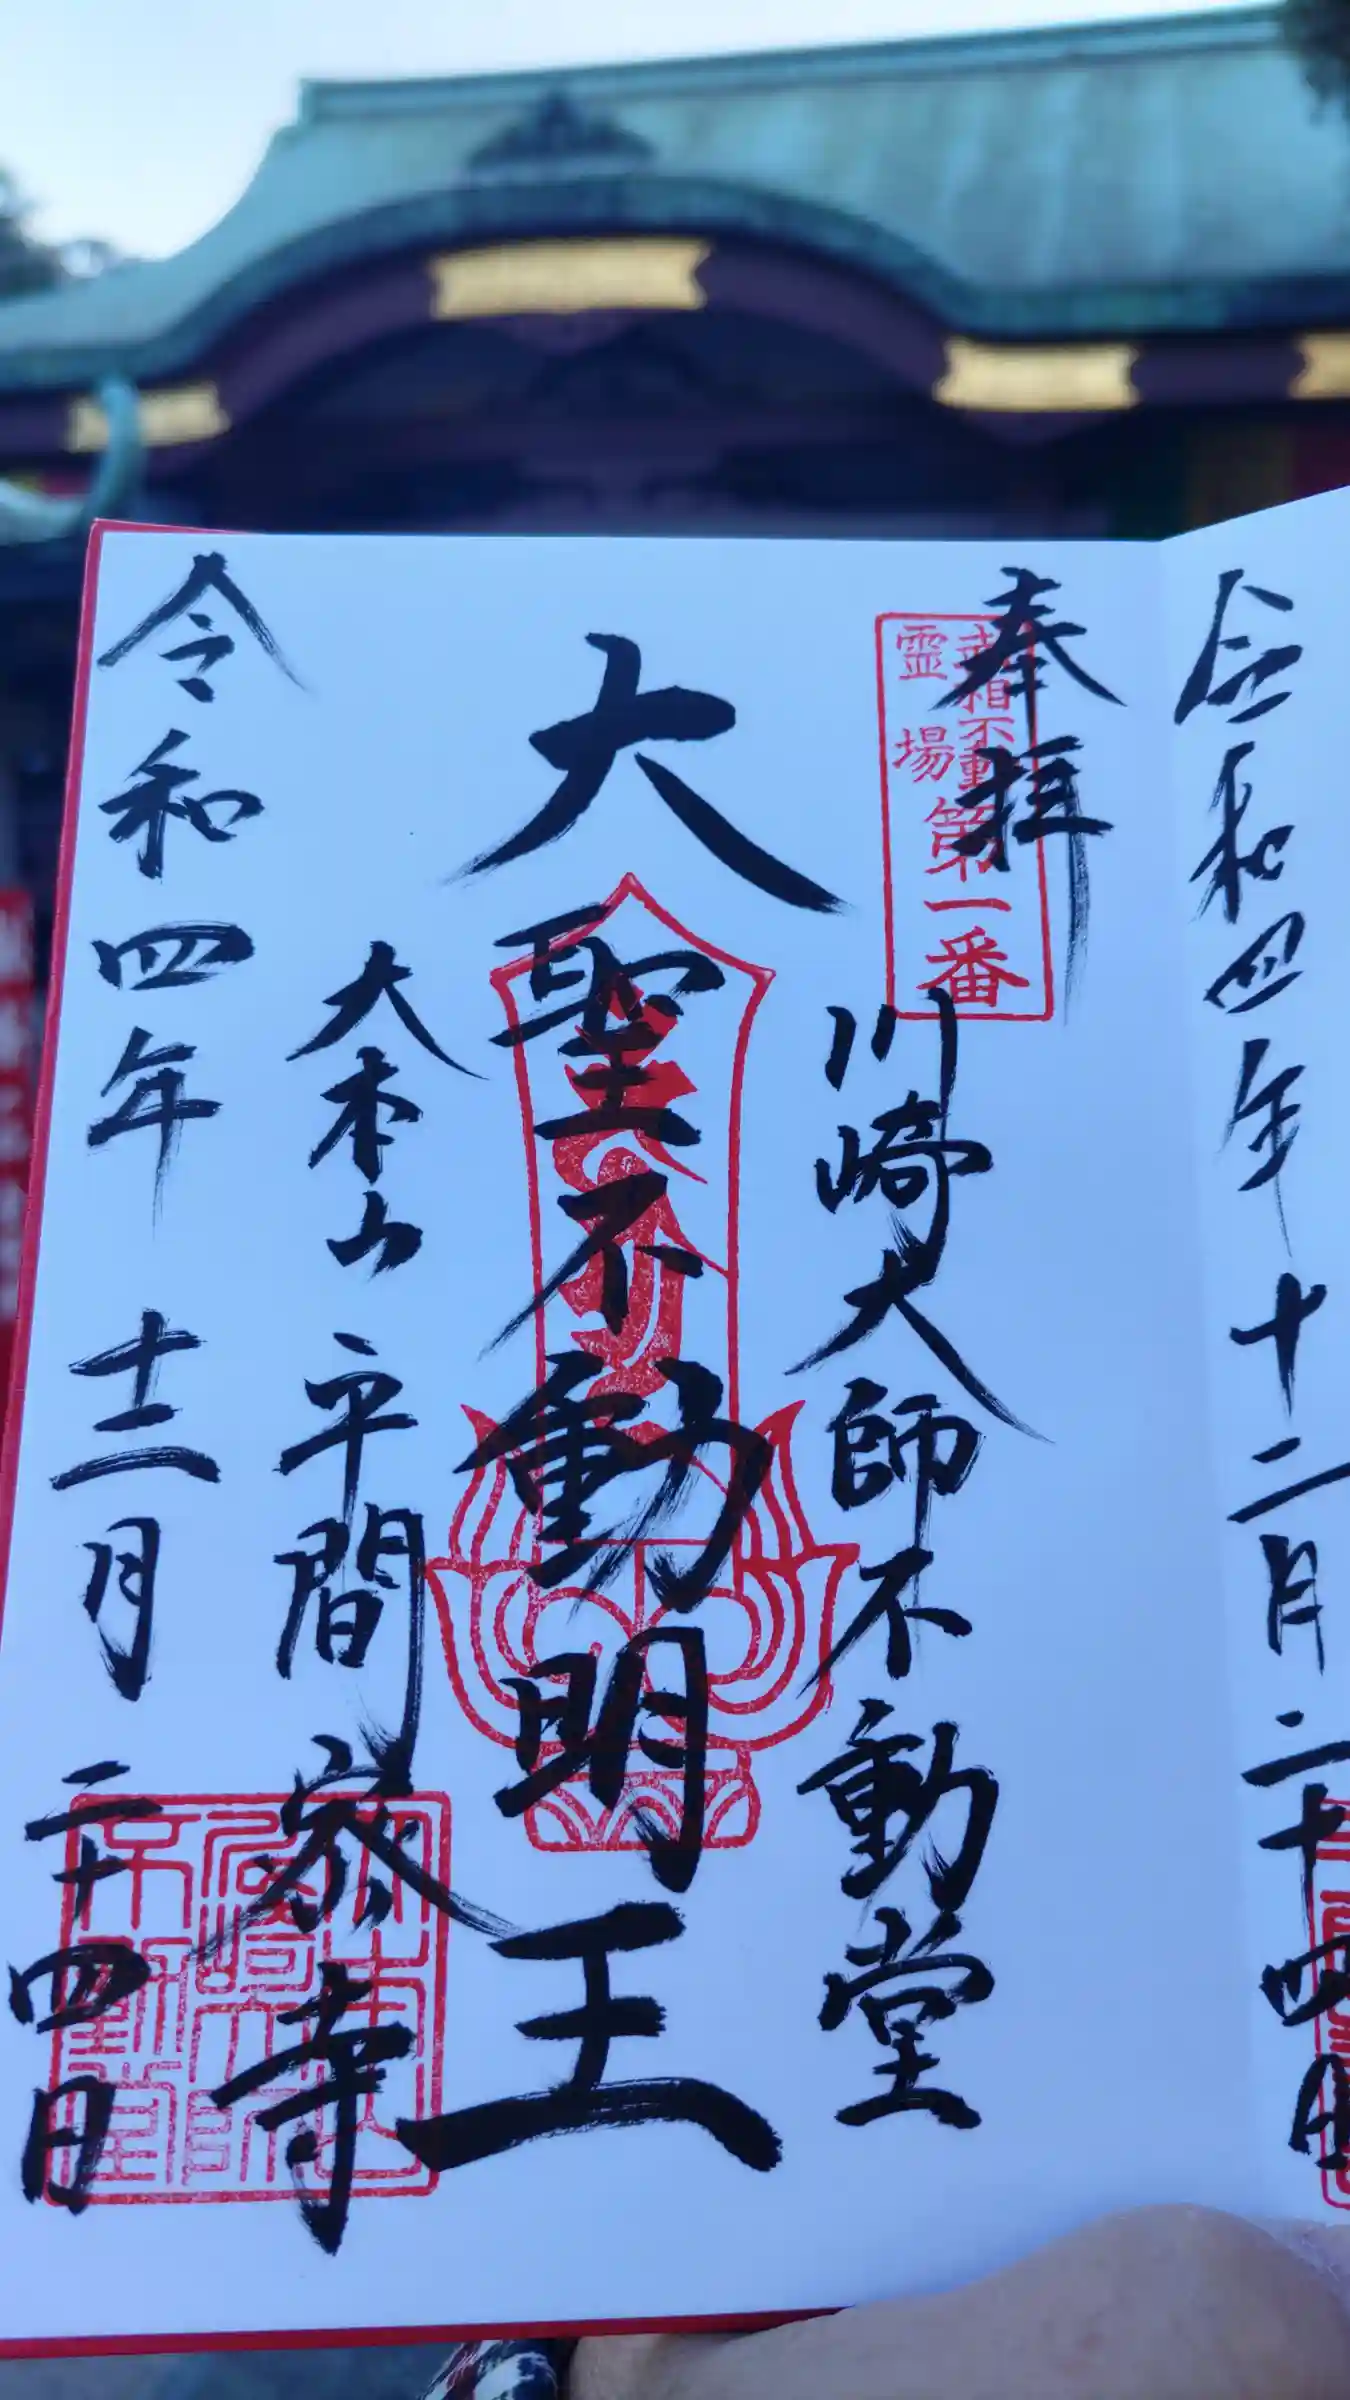 令和四年十二月二十四日
奉拝
武相不動
霊場
第一番
川崎大師不動堂
大聖不動明王
大本山 平間寺
令和四年十二月二十四日